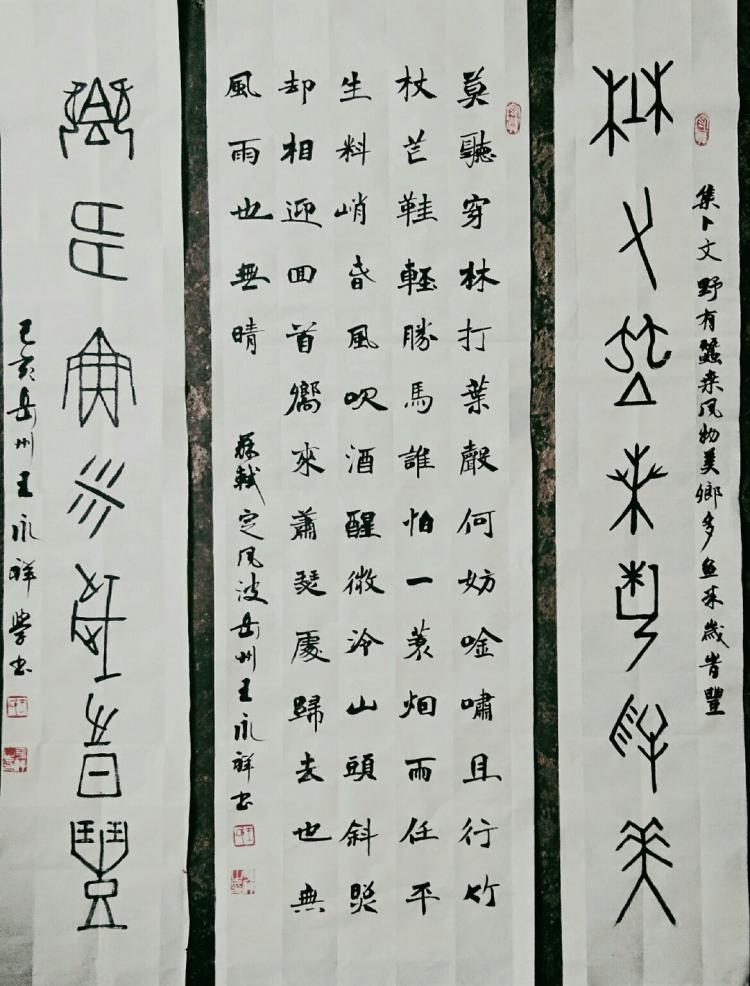 野有蠶桑風物美
集卜文野有蠶桑风物美鄉多魚米歲皆豐
莫聽穿林打葉聲何妨唫嘯且行竹
杖芒鞋輕勝馬誰怕一蓑烟雨任平
生料峭春風吹酒醒微冷山頭斜照
却相迎回首嚮來蕭瑟處歸去也無
風雨也無晴
蘇軾定风波岳州王永祥书
鄉多魚米歲皆豐
己亥岳州王永祥學书